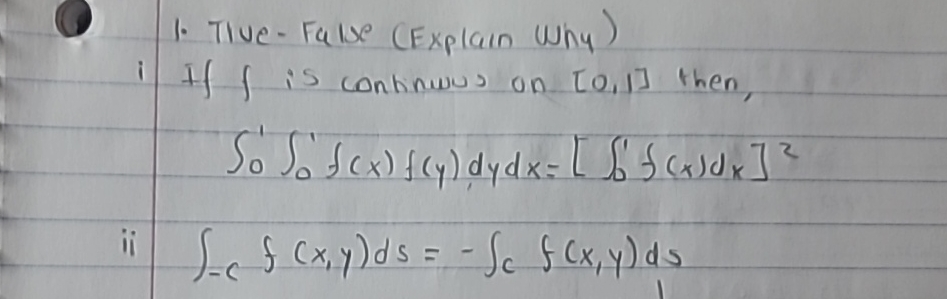 1. True-False (Explain Why)
i If f is continuous on [0,1] then,
∫₀¹ ∫₀¹ f(x) f(y) dy dx = [ ∫₀¹ f(x) dx ]²
ii ∫₋C f(x,y) ds = - ∫C f(x,y) ds